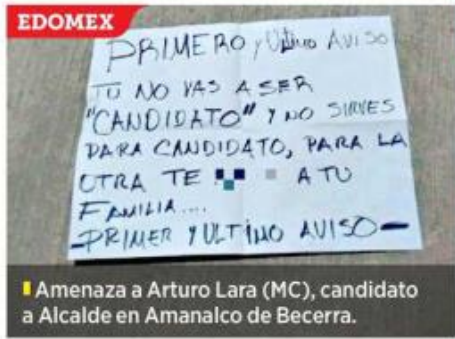 EDOMEX
PRIMERO y Ultimo AVISO
TU NO VAS A SER
"CANDIDATO" Y NO SIRVES
PARA CANDIDATO, PARA LA
OTRA TE A TU
FAMILIA....
-PRIMER Y ULTIMO AVISO-
Amenaza a Arturo Lara (MC), candidato
a Alcalde en Amanalco de Becerra.